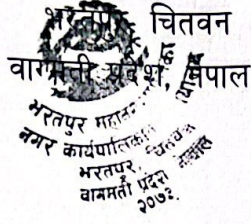 भरतपुर, चितवन
वागमती प्रदेश, नेपाल
भरतपुर महान
नगर कार्यपालिका
भरतपुर, चितवन
वागमती प्रदेश नेपाल
२०७३